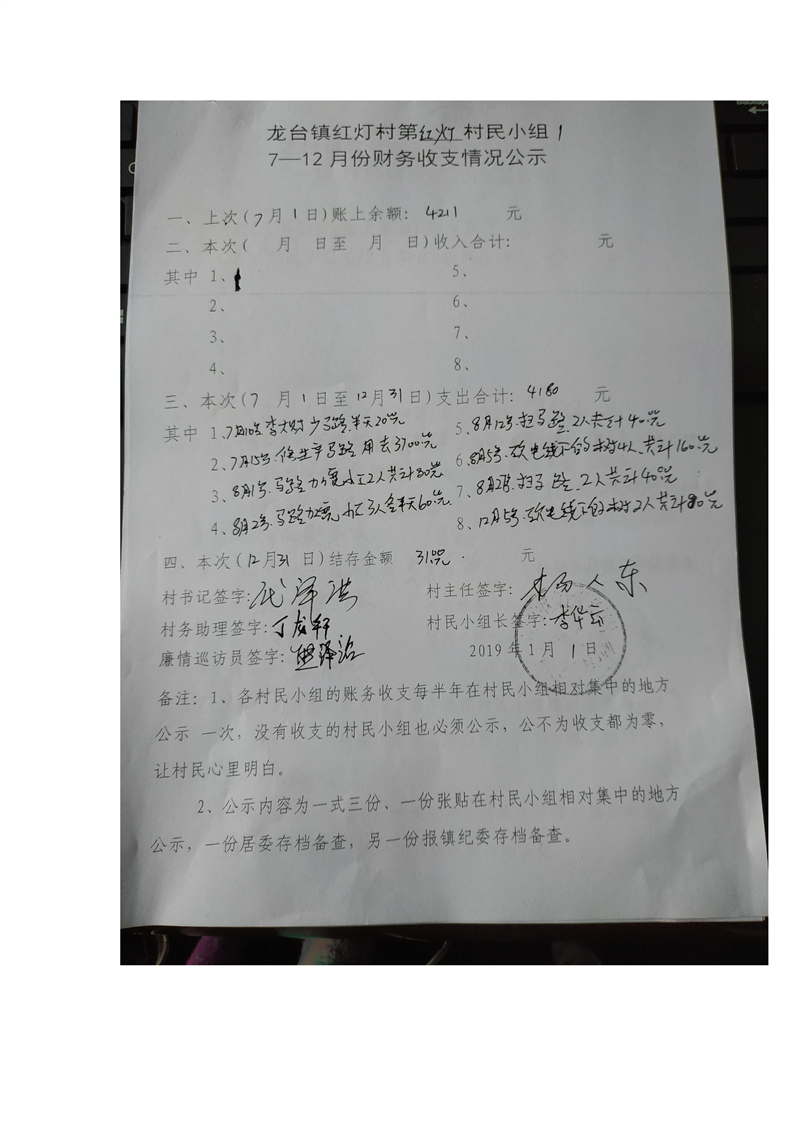 龙台镇红灯村第红灯村民小组
7—12月份财务收支情况公示
一、上次(7月1日)账上余额: 4211 元
二、本次( 月 日至 月 日)收入合计: 元
其中 1、 5、
2、 6、
3、 7、
4、 8、
三、本次(7月1日至12月31日)支出合计: 4180 元
其中 1、马路半天20元 5、8月12号.扫马路.2人共计40元
2、7月15号.修生产马路用去3700元 6、8月5号.砍电线下的树4人.共计160元
3、8月1号.马路 2人共计80元 7、扫马路.2人共计40元
4、8月2号.马路 3人 半天60元. 8、12月5号.砍电线下的树2人共计80元
四、本次(12月31日)结存金额 31元. 元
村书记签字: 村主任签字: 杨人东
村务助理签字:丁龙轩 村民小组长签字:李华云
廉情巡访员签字: 2019年1月1日
备注:1、各村民小组的账务收支每半年在村民小组相对集中的地方
公示 一次,没有收支的村民小组也必须公示,公不为收支都为零,
让村民心里明白。
2、公示内容为一式三份、一份张贴在村民小组相对集中的地方
公示,一份居委存档备查,另一份报镇纪委存档备查。